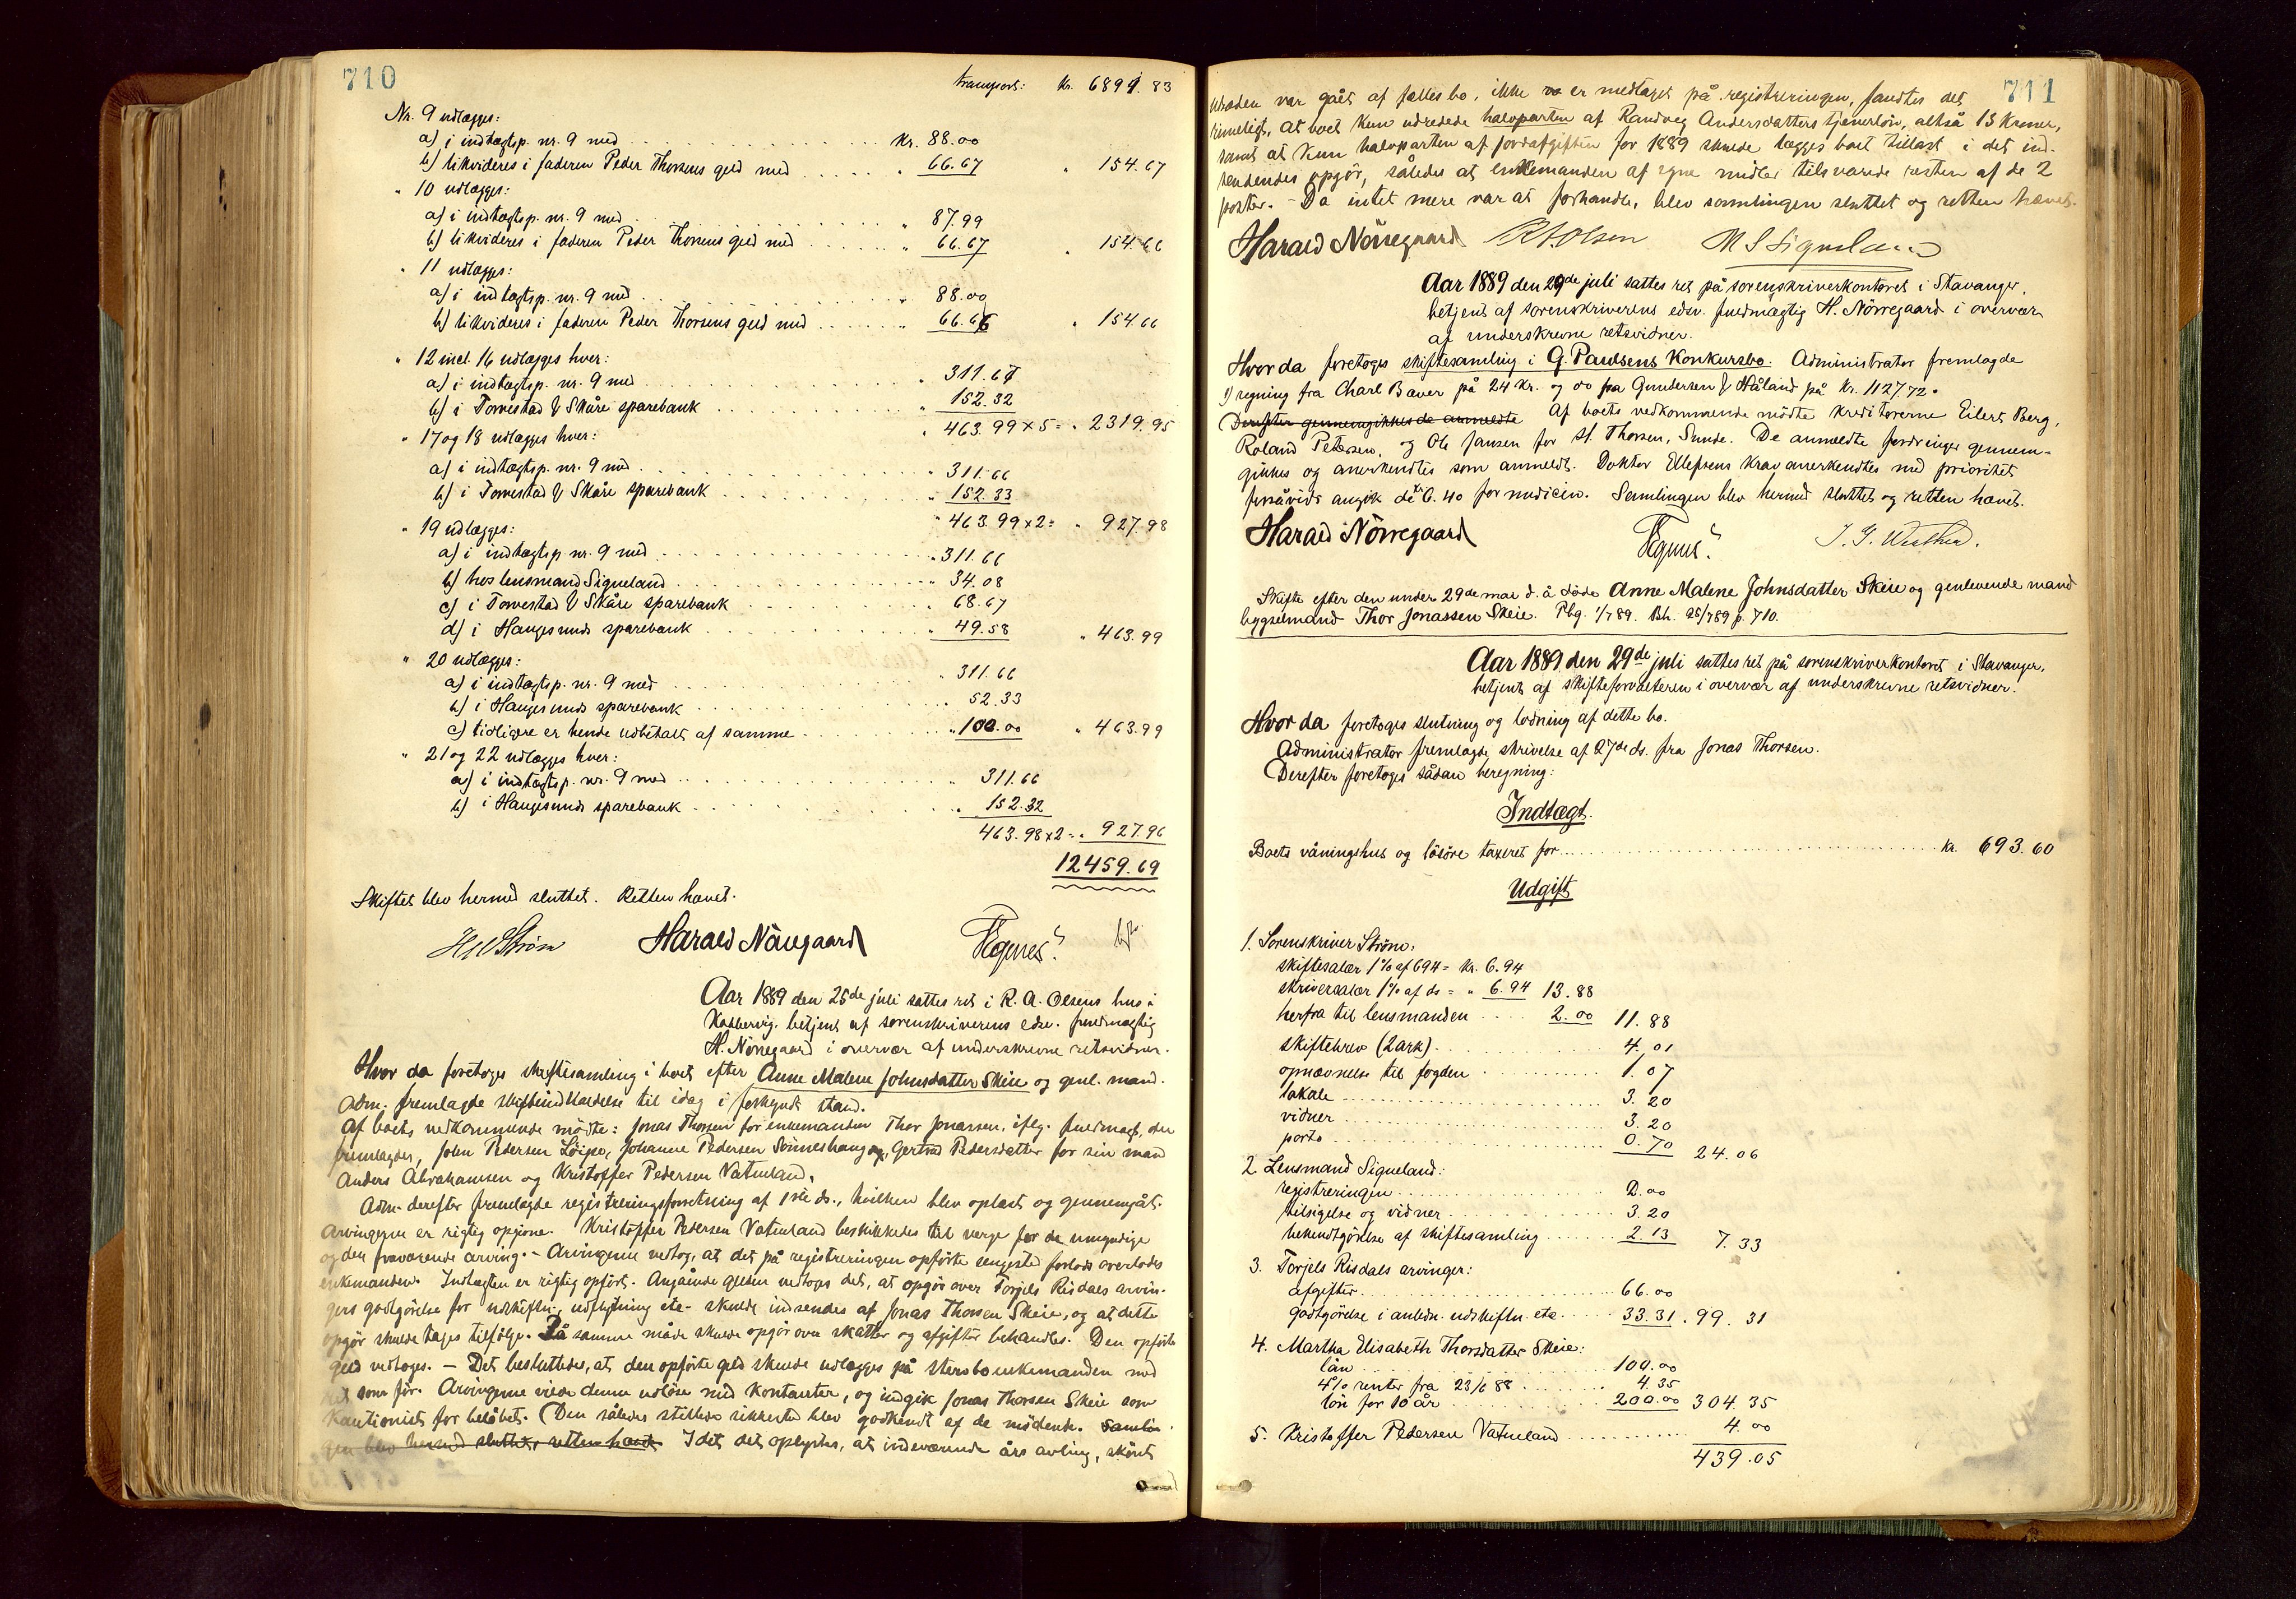 710
transport: Kr. 6891.83
Nr. 9 udlægges:
a) i indtægtsp. nr. 9 med Kr. 88.00
b) likvideres i faderen Peder Thorsens gæld med " 66.67 " 154.67
" 10 udlægges:
a) i indtægtsp. nr. 9 med " 87.99
b) likvideres i faderen Peder Thorsens gæld med " 66.67 " 154.66
" 11 udlægges:
a) i indtægtsp. nr. 9 med " 88.00
b) likvideres i faderen Peder Thorsens gæld med " 66.66 " 154.66
" 12 incl. 16 udlægges hver:
a) i indtægtsp. nr. 9 med " 311.67
b) i Torvestad & Skåre sparebank " 152.32
" 463.99 x 5 = " 2319.95
" 17 og 18 udlægges hver:
a) i indtægtsp. nr. 9 med " 311.66
b) i Torvestad & Skåre sparebank " 152.33
" 463.99 x 2 = " 927.98
" 19 udlægges:
a) i indtægtsp. nr. 9 med " 311.66
b) hos lensmand Siqueland " 34.08
c) i Torvestad & Skåre sparebank " 68.67
d) i Haugesunds sparebank " 49.58 " 463.99
" 20 udlægges:
a) i indtægtsp. nr. 9 med " 311.66
b) i Haugesunds sparebank " 52.33
c) tidligere er hende udbetalt af samme " 100.00 " 463.99
" 21 og 22 udlægges hver:
a) i indtægtsp. nr. 9 med " 311.66
b) i Haugesunds sparebank " 152.32
463.98 x 2 = " 927.96
12459.69
Skiftet blev hermed sluttet. Retten hævet.
Strøm Harald Nörregaard Tegnes.
Aar 1889 den 25de juli sattes ret i R. A. Olsens hus i
betjent af sorenskriverens edsv. fuldmægtig
H. Nörregaard i overvær af underskrevne retsvidner.
Hvor da foretoges skiftesamling i boet efter Anne Malene Johnsdatter Skeie og genl. mand.
Adm. fremlagde skifteindkaldelse til idag i forkyndt stand.
Af boets vedkommende mödte: Jonas Thorsen for enkemanden Thor Jonassen, iflg. fuldmagt, der
fremlagdes, John Pedersen Johanne Pedersen og Gertrud Pedersdatter for sin mand
Anders Abrahamsen og Kristoffer Pedersen Vatneland.
Adm. derefter fremlagde registreringsforretning af 1ste ds., hvilken blev oplæst og gennemgåt.
Arvingerne er rigtig opgivne. Kristoffer Pedersen Vatneland beskikkedes til verge for de umyndige
og den fraværende arving. – Arvingerne vedtog, at det på registreringen opförte sengested forlods overlodes
enkemanden. Indtægten er rigtig opfört. Angående gjelden vedtoges det, at opgör over Torjels Risdals arvin-
gers godtgörelse for udskiftn., udflytning etc. skulde indsendes af Jonas Thorsen Skeie, og at dette
opgör skulde tages tilfölge. På samme måde skulde opgör over skatter og afgifter behandles. Den opförte
gæld vedtoges. – Det besluttedes, at den opförte gæld skulde udlægges på stervboenkemanden med
ret som för. Arvingerne vilde denne udlöse med kontanter, og indgik Jonas Thorsen Skeie som
kautionist for belöbet. (Den således stillede sikkerhed blev godkendt af de mödende. Samlin-
gen blev hermed sluttet, retten hævet. Idet det oplystes, at indeværende års avling, skönt
711
udsæden var gået af fælles bo, ikke er medtaget på registreringen, fandtes det
rimeligt, at boet kun udredede halvparten af Randveg Andersdatters tjenerlön, altså 13 Kroner,
samt at kun halvparten af jordafgiften for 1889 skulde lægges boet tillast i det ind-
sendendes opgör, således at enkemanden af egne midler tilsvarede resten af de 2
poster. – Da intet mere var at forhandle, blev samlingen sluttet og retten hævet.
Harald Nörregaard R A Olsen M S Siqueland
Aar 1889 den 29de juli sattes ret på sorenskriverkontoret i Stavanger,
betjent af sorenskriverens edsv. fuldmægtig H. Nörregaard i overvær
af underskrevne retsvidner.
Hvor da foretoges skiftesamling i G. Paulsens Konkursbo. Administrator fremlagde
1) regning fra Charl Bæver på 24 kr. og do fra Gundersen & Håland på kr. 1127.72.
Derefter gennemgikkes de anmeldte Af boets vedkommende mödte kreditorerne Eilert Berg,
Roland Petersen, og Ole Jansen for St. Thorsen, Sunde. De anmeldte fordringer gennem-
gikkes og anerkendtes som anmeldt. Doktor Ellefsens krav anerkendtes med prioritet
forsåvidt angik de kr 6.40 for medicin. Samlingen blev hermed sluttet og retten hævet.
Harald Nörregaard Tegnes.
Skifte efter den under 29de mai d. å döde Anne Malene Johnsdatter Skeie og genlevende mand
bygselmand Thor Jonassen Skeie. Pbg. 1/7 89. Bh. 25/7 89 p. 710.
Aar 1889 den 29de juli sattes ret på sorenskriverkontoret i Stavanger,
betjent af skifteforvalteren i overvær af underskrevne retsvidner.
Hvor da foretoges slutning og lodning af dette bo.
Administrator fremlagde skrivelse af 27de ds. fra Jonas Thorsen.
Derefter foretoges sådan beregning:
Indtægt.
Boets våningshus og lösöre taxeret for kr. 693.60
Udgift
1. Sorenskriver Ström:
skiftesalær 1% af 694 = Kr. 6.94
skriversalær 1% af do = " 6.94 13.88
herfra til lensmanden 2.00 11.88
skiftebrev (2 ark) 4.01
opnævnelse til fogden 1.07
lokale 3.20
vidner 3.20
porto 0.70 24.06
2. Lensmand Siqueland:
registreringen 2.00
tilsigelse og vidner 3.20
bekendtgörelse af skiftesamling 2.13 7.33
3. Torjels Risdals arvinger:
afgifter 66.00
godtgörelse i anledn. udskiftn. etc. 33.31 . 99.31
4. Martha Elisabeth Thorsdatter Skeie:
lån 100.00
4% renter fra 23/6 88 4.35
lön for 10 år 200.00 304.35
5. Kristoffer Pedersen Vatneland 4.00
439.05